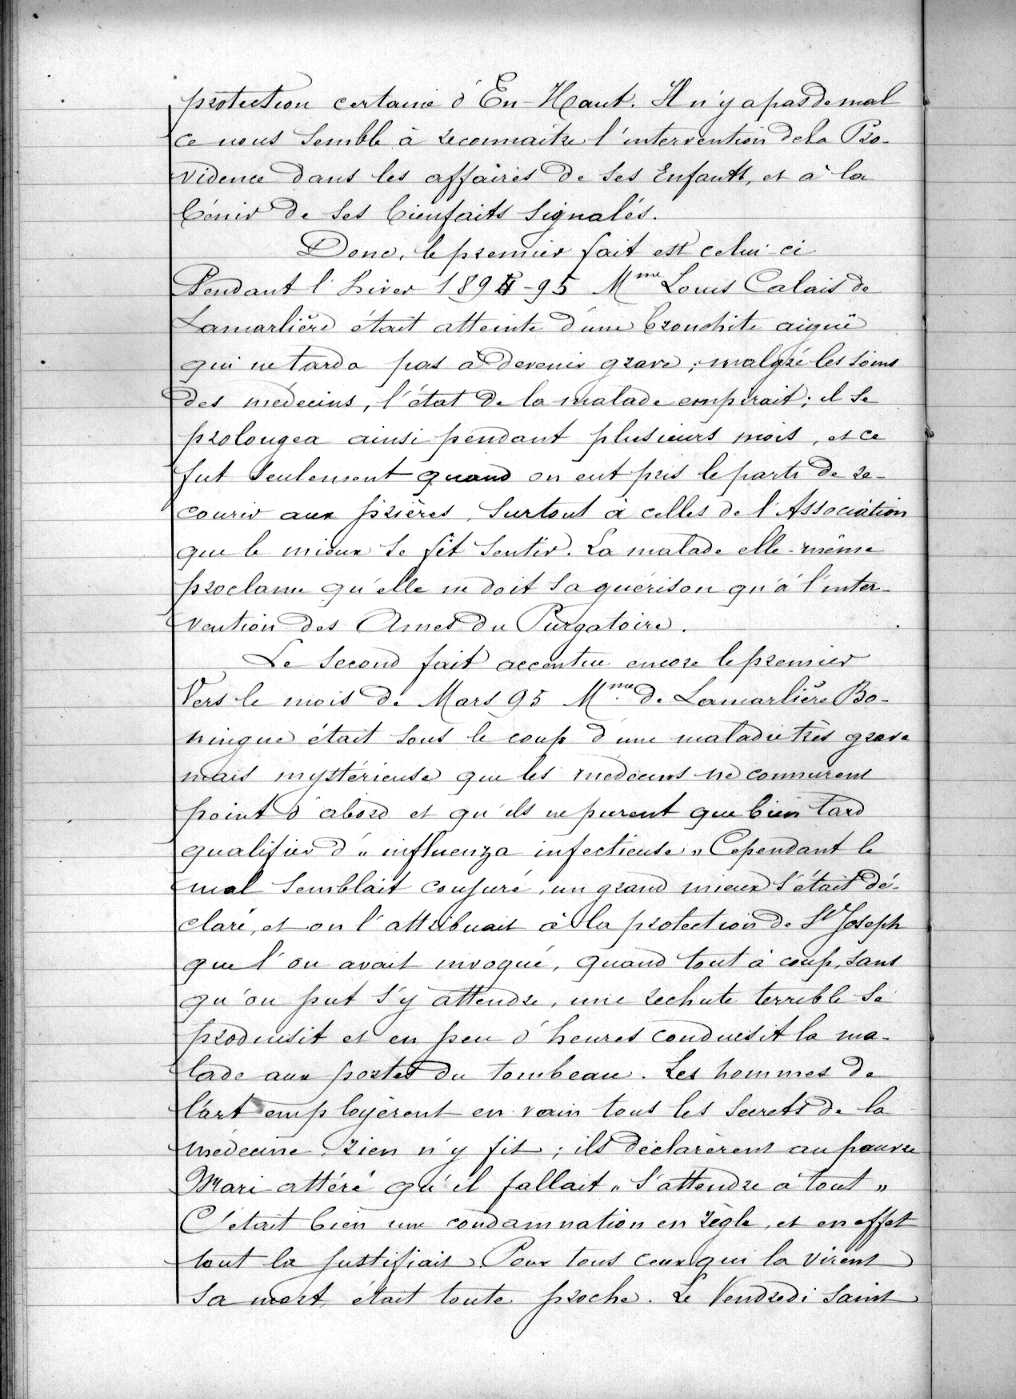 protection certaine d'En-Haut. Il n'y a pas de mal
ce nous semble à reconnaitre l'intervention de la Pro-
vidence dans les affaires de ses Enfants, et à la
bénir de ses bienfaits signalés.
Donc, le premier fait est celui-ci
Pendant l'hiver 1894-95 Mme Louis Calais de
Lamarlière était atteinte d'une bronchite aiguë
qui ne tarda pas à devenir grave ; malgré les soins
des médecins, l'état de la malade empirait ; il se
prolongea ainsi pendant plusieurs mois, et ce
fut seulement quand on eut pris le parti de re-
courir aux prières, surtout à celles de l'Association
que le mieux se fit sentir. La malade elle-même
proclame qu'elle ne doit sa guérison qu'à l'inter-
vention des Ames du Purgatoire.
Le second fait accentue encore le premier
Vers le mois de Mars 95 Mme de Lamarlière Bo-
ningue était sous le coup d'une maladie très grave
mais mystérieuse que les médecins ne connurent
point d'abord et qu'ils ne purent que bien tard
qualifier d'"influenza infectieuse" Cependant le
mal semblait conjuré, un grand mieux s'était dé-
claré, et on l'attribuait à la protection de St Joseph
que l'on avait invoqué, quand tout à coup, sans
qu'on put s'y attendre, une rechute terrible se
produisit et en peu d'heures conduisit la ma-
lade aux portes du tombeau. Les hommes de
l'art employèrent en vain tous les secrets de la
médecine rien n'y fit ; ils déclarèrent au pauvre
Mari attéré qu'il fallait "s'attendre à tout"
C'était bien une condamnation en règle, et en effet
tout la justifiait Pour tous ceux qui la virent
sa mort était toute proche. Le Vendredi saint